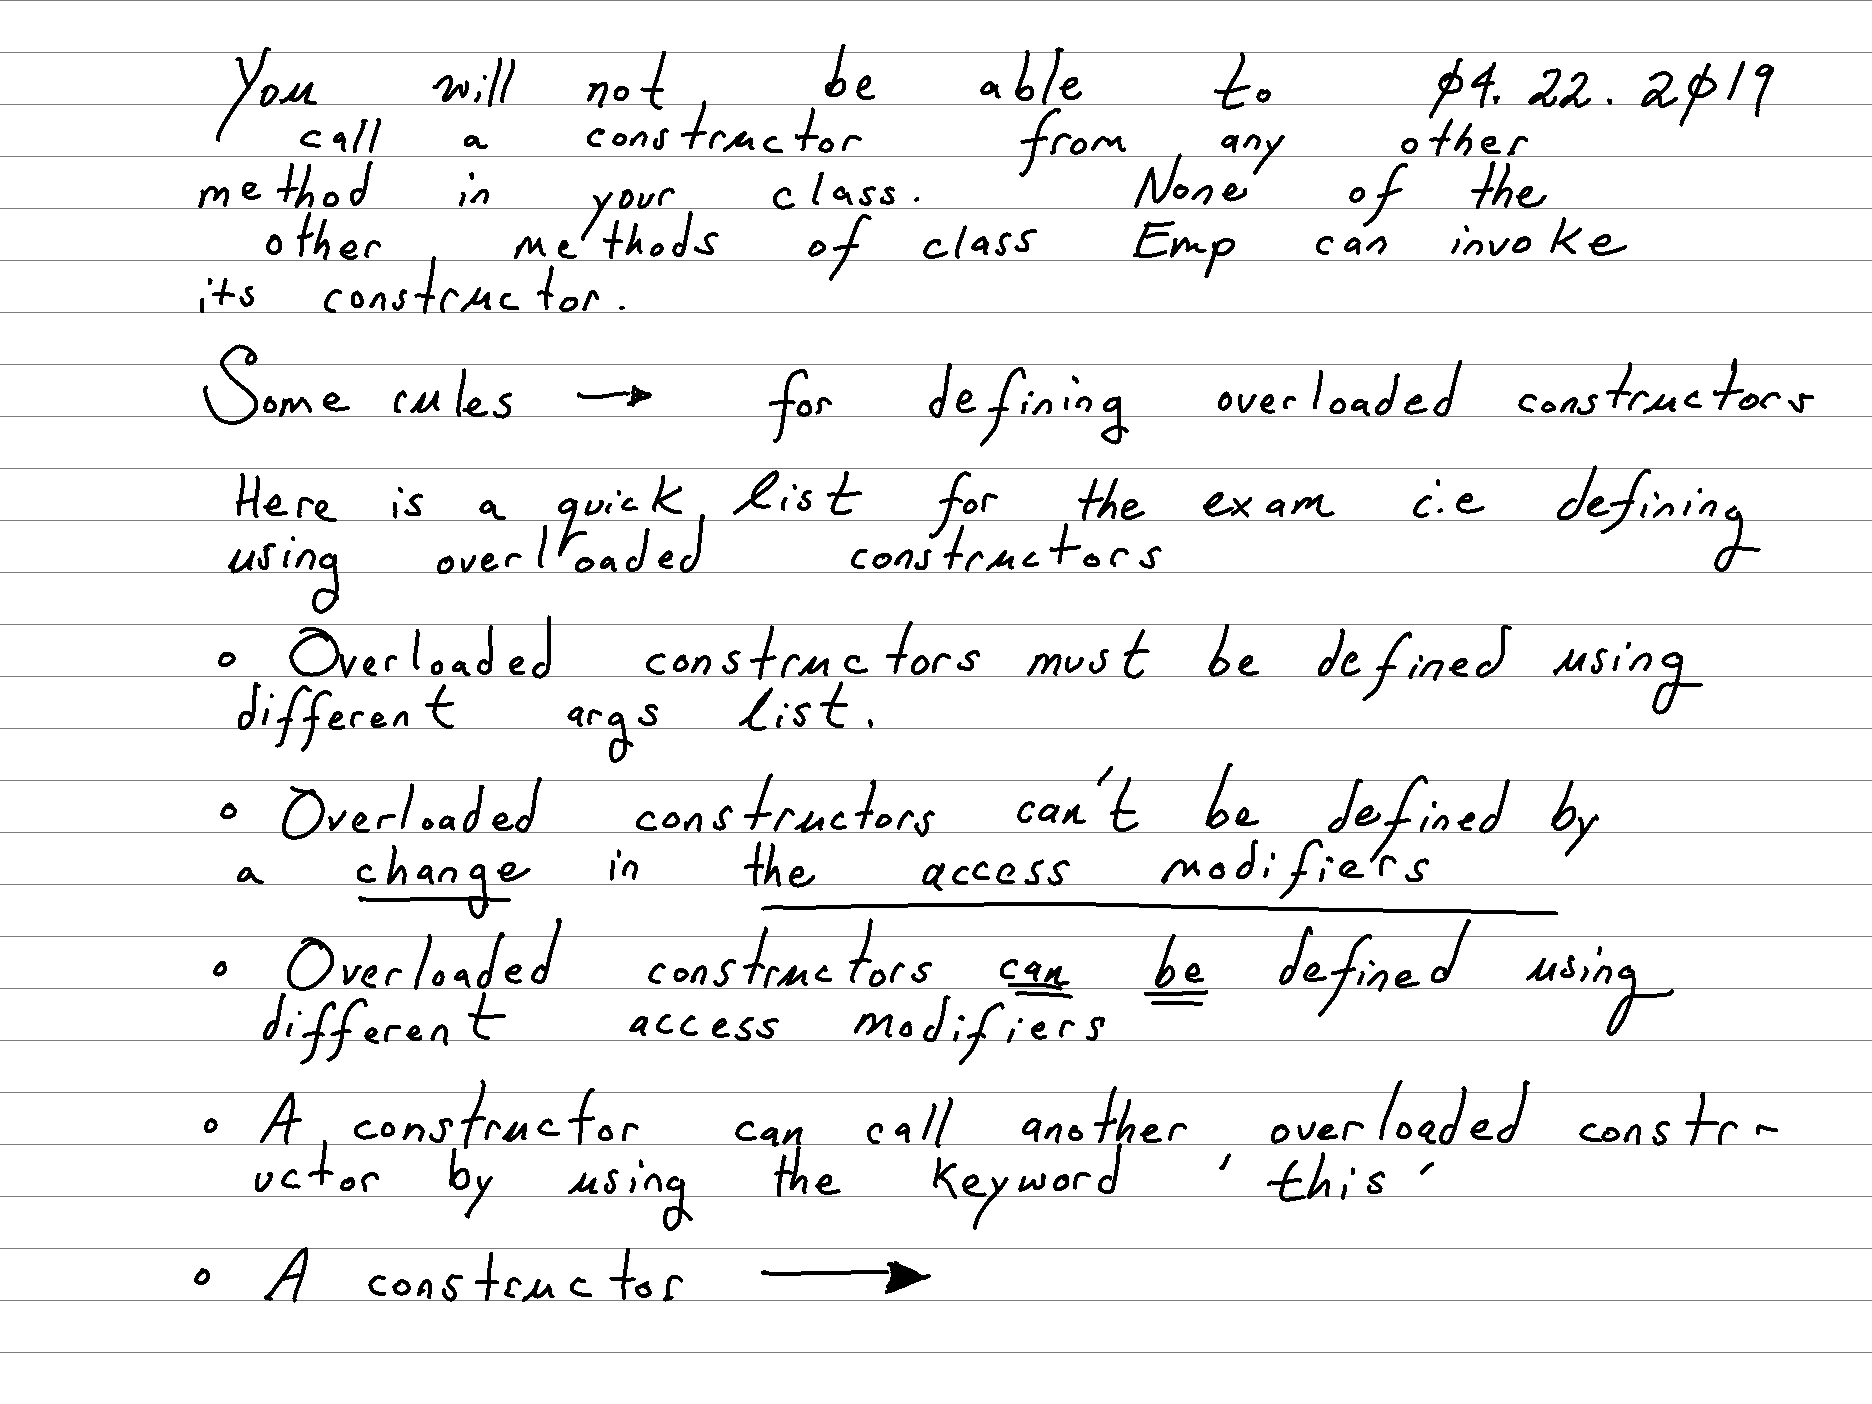 You will not be able to 04.22.2019
call a constructor from any other
method in your class. None of the
other methods of class Emp can invoke
its constructor.
Some rules → for defining overloaded constructors
Here is a quick list for the exam i.e defining
using overloaded constructors
• Overloaded constructors must be defined using
different args list.
• Overloaded constructors can't be defined by
a change in the access modifiers
• Overloaded constructors can be defined using
different access modifiers
• A constructor can call another overloaded constr-
uctor by using the keyword 'this'
• A constructor →